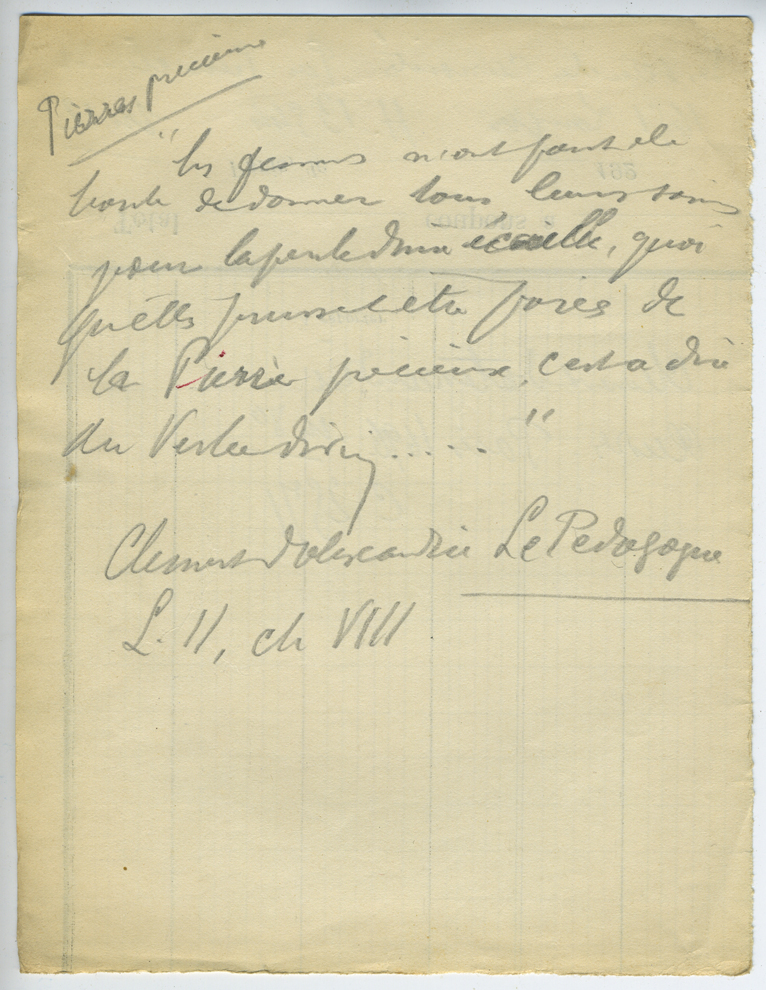 Pierres précieuses
"les femmes n'ont point de
honte de donner tous leurs soins
pour la perle d'une écaille, quoi
qu'elles puissent être parées de
la Pierre précieuse, c'est a dire
du Verbe divin ..... "
Clement d'Alexandrie Le Pedagogue
L. II, ch VIII